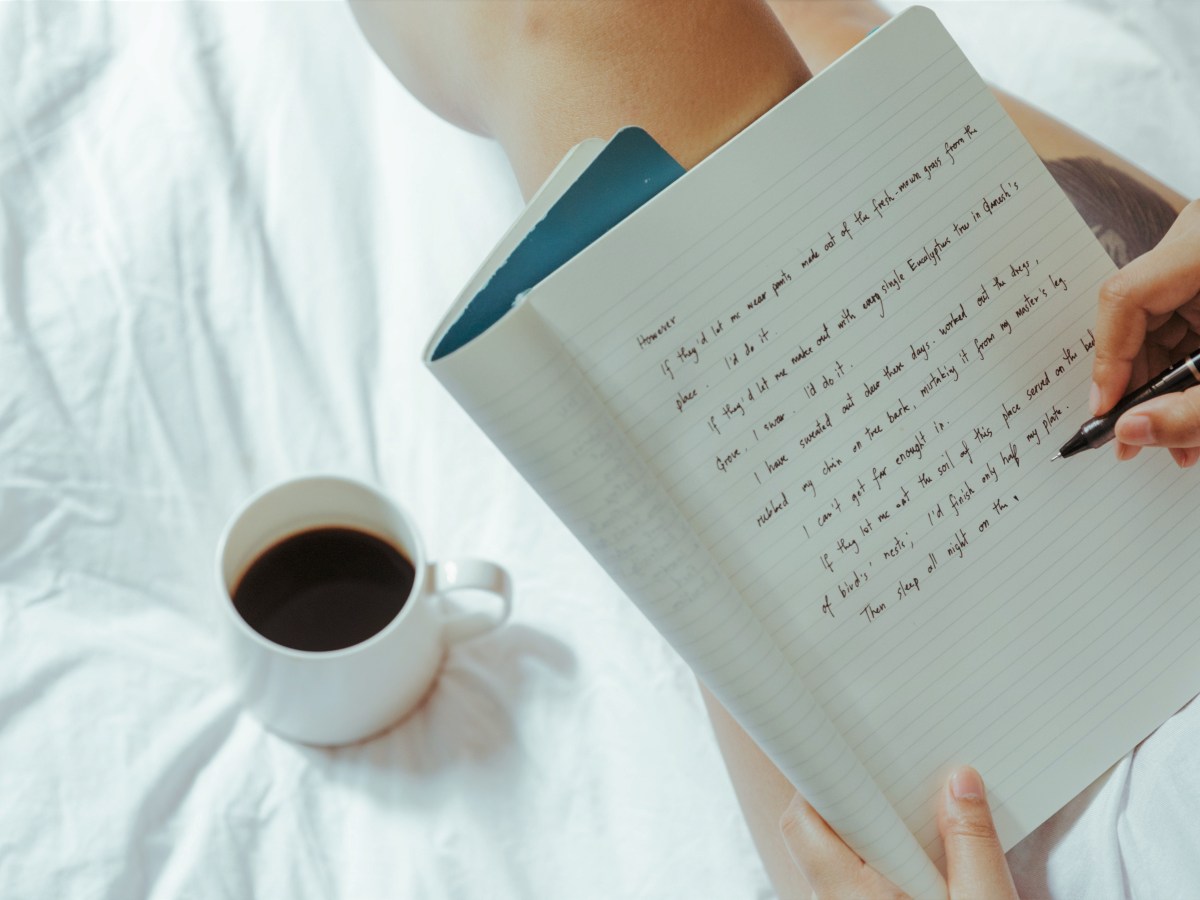 However
If they'd let me wear pants made out of the fresh-mown grass from the
place. I'd do it.
If they'd let me make out with every single Eucalyptus tree in Ganesh's
Grove. I swear. I'd do it.
I have sweated out dear these days. worked out the dregs,
rubbed my chin on tree bark, mistaking it from my master's leg
I can't get far enough in.
If they let me eat the soil of this place served on the bed
of bird's, nests; I'd finish only half my plate.
Then sleep all night on the.